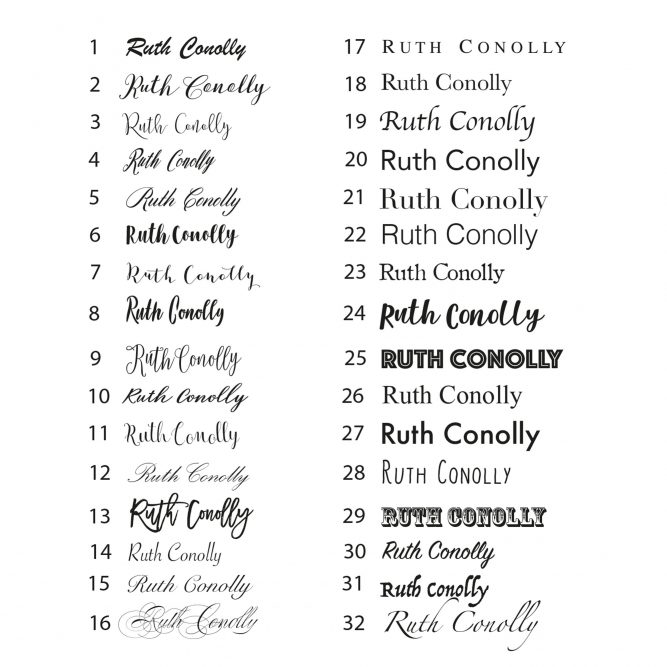 1 Ruth Conolly
2 Ruth Conolly
3 Ruth Conolly
4 Ruth Conolly
5 Ruth Conolly
6 Ruth Conolly
7 Ruth Conolly
8 Ruth Conolly
9 Ruth Conolly
10 Ruth Conolly
11 Ruth Conolly
12 Ruth Conolly
13 Ruth Conolly
14 Ruth Conolly
15 Ruth Conolly
16 Ruth Conolly
17 RUTH CONOLLY
18 Ruth Conolly
19 Ruth Conolly
20 Ruth Conolly
21 Ruth Conolly
22 Ruth Conolly
23 Ruth Conolly
24 Ruth Conolly
25 RUTH CONOLLY
26 Ruth Conolly
27 Ruth Conolly
28 RUTH CONOLLY
29 RUTH CONOLLY
30 Ruth Conolly
31 Ruth Conolly
32 Ruth Conolly